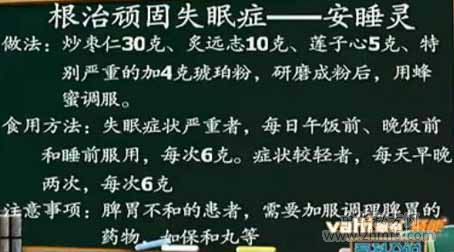 根治顽固失眠症——安睡灵
做法：炒枣仁30克、炙远志10克、莲子心5克、特
别严重的加4克琥珀粉，研磨成粉后，用蜂
蜜调服。
食用方法：失眠症状严重者，每日午饭前、晚饭前
和睡前服用，每次6克。症状较轻者，每天早晚
两次，每次6克
注意事项：脾胃不和的患者，需要加服调理脾胃的
药物，如保和丸等